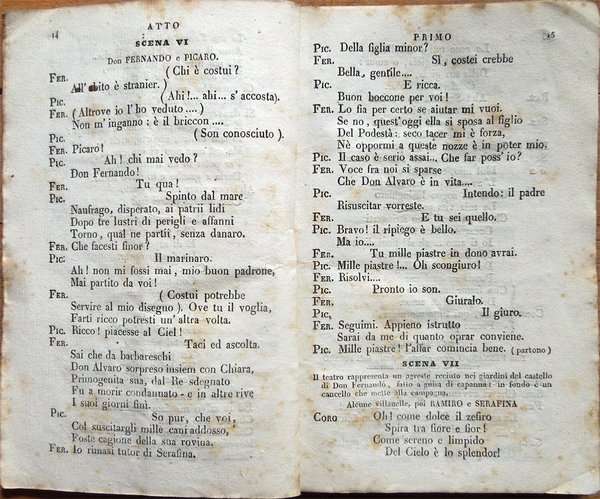 14
ATTO
SCENA VI
Don FERNANDO e PICARO.
FER. (Chi è costui?
All' abito è stranier. )
PIC. (Ahi!... ahi... s' accosta).
FER. (Altrove io l'ho veduto....)
Non m' inganno: è il briccon ....
PIC. (Son conosciuto ).
FER. Picaro!
PIC. Ah! chi mai vedo?
Don Fernando!
FER. Tu qua!
PIC. Spinto dal mare
Naufrago, disperato, ai patrii lidi
Dopo tre lustri di perigli e affanni
Torno, qual ne partii, senza danaro.
FER. Che facesti finor?
PIC. Il marinaro.
Ah! non mi fossi mai, mio buon padrone,
Mai partito da voi!
FER. (Costui potrebbe
Servire al mio disegno ). Ove tu il voglia,
Farti ricco potresti un' altra volta.
PIC. Ricco! piacesse al Ciel!
FER. Taci ed ascolta.
Sai che da barbareschi
Don Alvaro sorpreso insiem con Chiara,
Primogenita sua, dal Re sdegnato
Fu a morir condannato - e in altre rive
I suoi giorni finì.
PIC. So pur, che voi,
Col suscitargli mille cani addosso,
Foste cagione della sua rovina.
FER. Io rimasi tutor di Serafina.
PRIMO
15
PIC. Della figlia minor?
FER. Sì, costei crebbe
Bella, gentile....
PIC. E ricca.
Buon boccone per voi!
FER. Lo fia per certo se aiutar mi vuoi.
Se no, quest'oggi ella si sposa al figlio
Del Podestà: seco tacer mi è forza,
Nè oppormi a queste nozze è in poter mio.
PIC. Il caso è serio assai... Che far poss' io?
FER. Voce fra noi si sparse
Che Don Alvaro è in vita....
PIC. Intendo: il padre
Risuscitar vorreste.
FER. E tu sei quello.
PIC. Bravo! il ripiego è bello.
Ma io....
FER. Tu mille piastre in dono avrai.
PIC. Mille piastre!... Oh scongiuro!
FER. Risolvi....
PIC. Pronto io son.
FER. Giuralo.
PIC. Il giuro.
FER. Seguimi. Appieno istrutto
Sarai da me di quanto oprar conviene.
PIC. Mille piastre! l'affar comincia bene. (partono)
SCENA VII
Il teatro rappresenta un agreste recinto nei giardini del castello
di Don Fernando, fatto a guisa di capanna: in fondo è un
cancello che mette alla campagna.
Alcune villanelle, poi RAMIRO e SERAFINA
CORO Oh! come dolce il zefiro
Spira tra fiore e fior!
Come sereno e limpido
Del Cielo è lo splendor!